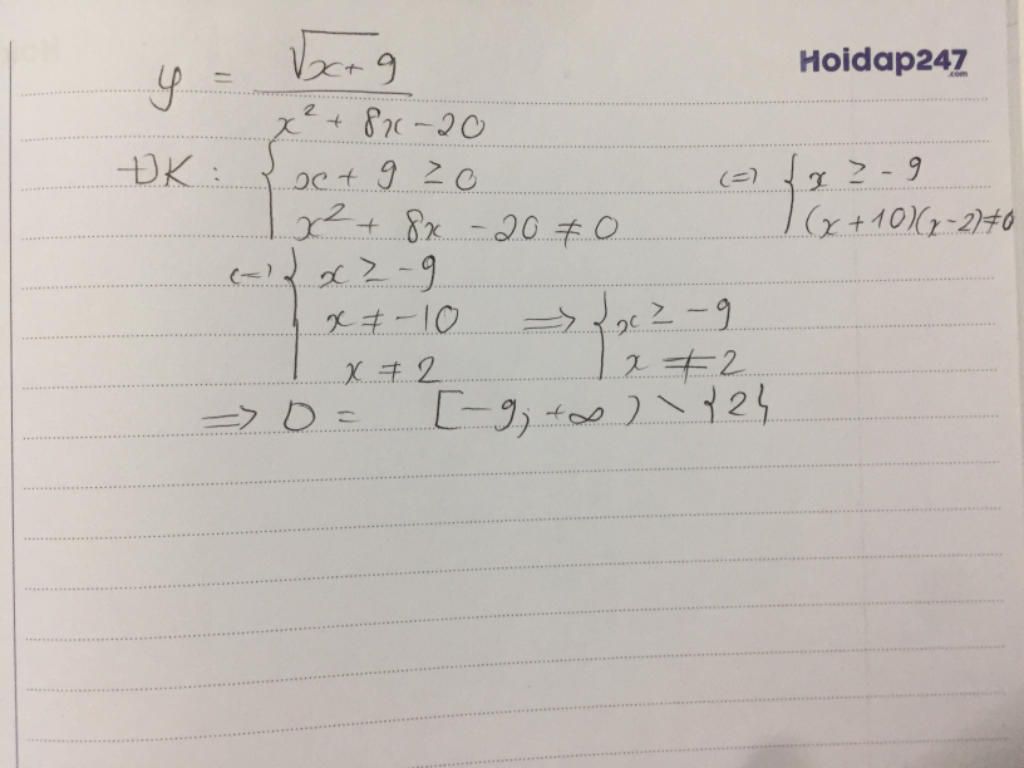 Hoidap247
.com
y = √x+9 / x² + 8x - 20
ĐK: { x + 9 ≥ 0 (=) { x ≥ -9
x² + 8x - 20 ≠ 0 (x + 10)(x - 2) ≠ 0
(=) { x ≥ -9
x ≠ -10 => { x ≥ -9
x ≠ 2 x ≠ 2
=> D = [-9; +∞) \ {2}